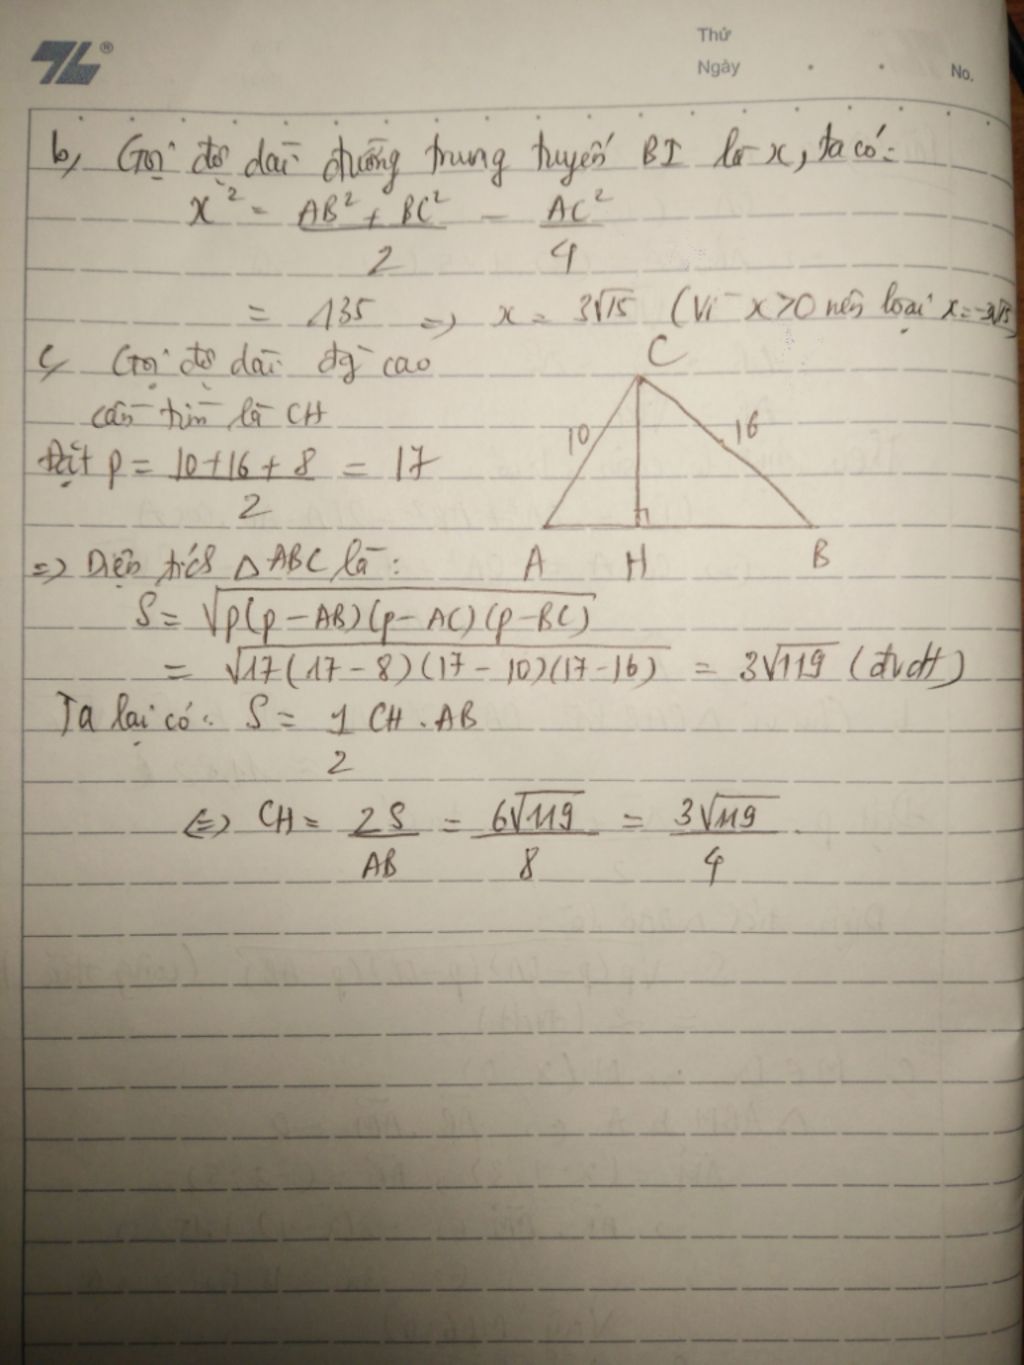 Thứ
Ngày
No.
b, Gọi độ dài đường trung tuyến BI là x, ta có:
x² = (AB² + BC²)/2 - AC²/4
= 135 => x = 3√15 (Vì x>0 nên loại x=-3√15)
c, Gọi độ dài đg cao
cần tìm là CH
Đặt p = (10+16+8)/2 = 17
C
10
16
A H B
=> Diện tích △ABC là:
S = √(p(p-AB)(p-AC)(p-BC))
= √(17(17-8)(17-10)(17-16)) = 3√119 (đvdt)
Ta lại có: S = 1/2 CH.AB
<=> CH = 2S/AB = 6√119/8 = 3√119/4.